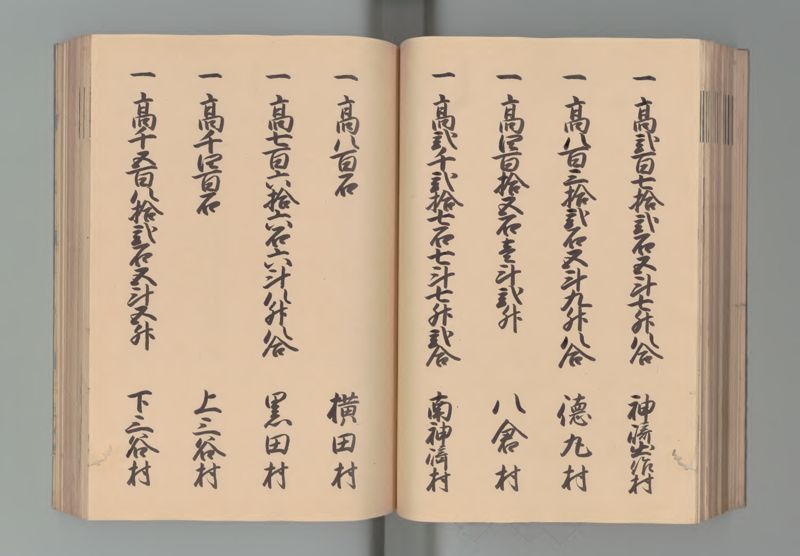 一 高弐百七拾弐石五斗七升八合 神崎出作村
一 高八百三拾弐石五斗九升八合 徳丸村
一 高四百拾五石壱斗弐升 八倉村
一 高弐千弐拾七石七斗七升弐合 南神崎村
一 高八百石 横田村
一 高七百六拾六石六斗八升八合 黒田村
一 高千四百石 上三谷村
一 高千五百八拾弐石五斗五升 下三谷村